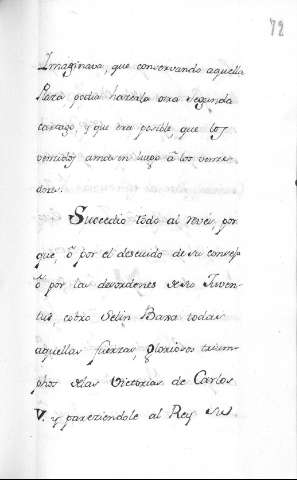 72
Imaginava, que conservando aquella
Plaza podia hazerla otra segunda
cartago, y que era posible, que los
vencidos amasen luego â los vence-
dores.
Sucedio todo al revés, por
que, ô por el descuido de su consejo
ô por las desordenes de su Juven-
tud, cobro Selin Baxa todas
aquellas fuerzas, gloriosos trium-
phos de las Victorias de Carlos
V. y pareziendole al Rey su